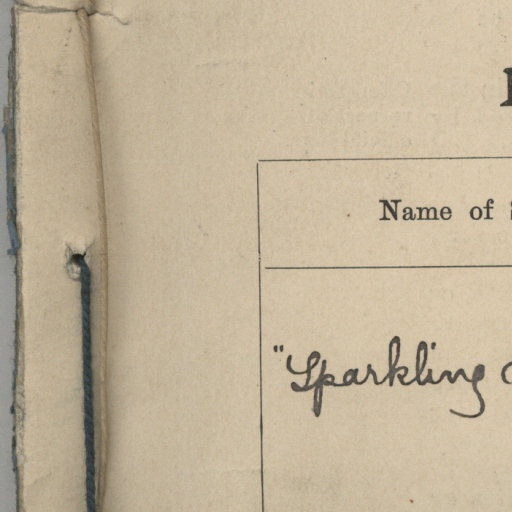 Name of
"Sparkling